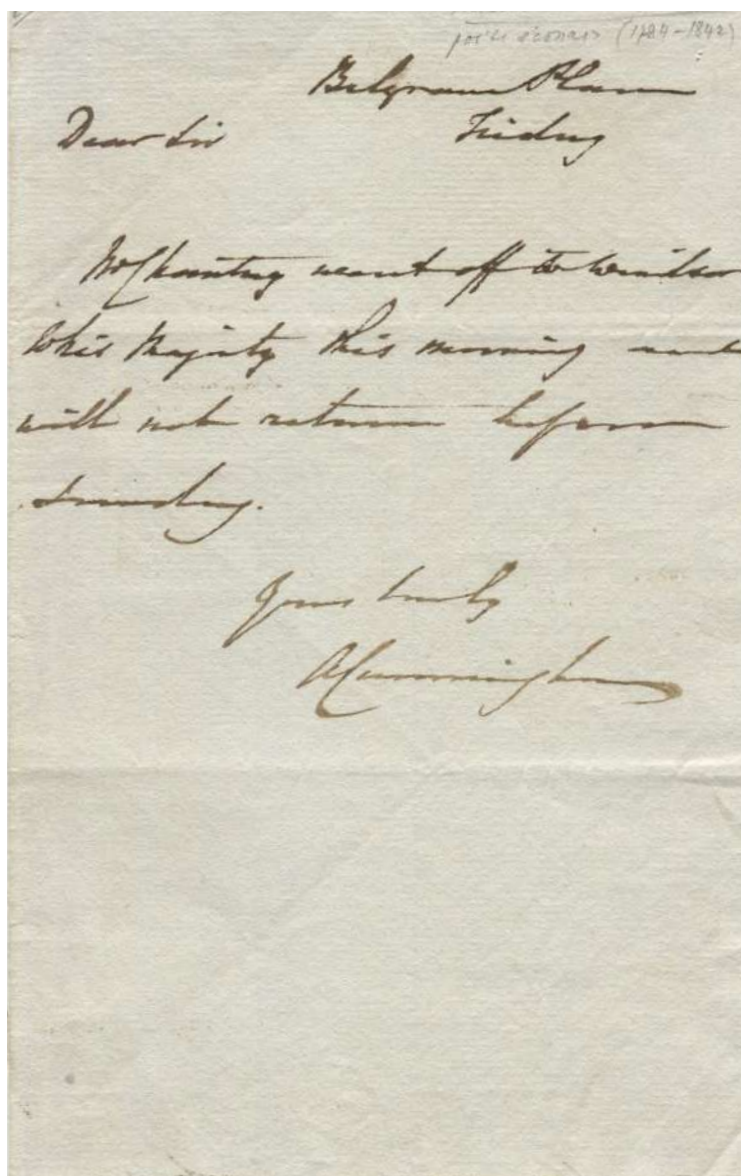 poète écossais (1784-1842)
Belgrave Place
Dear Sir Friday
Mr Chantrey went off to Windsor
to his Majesty this morning and
will not return before
Sunday.
Yours truly
A Cunningham